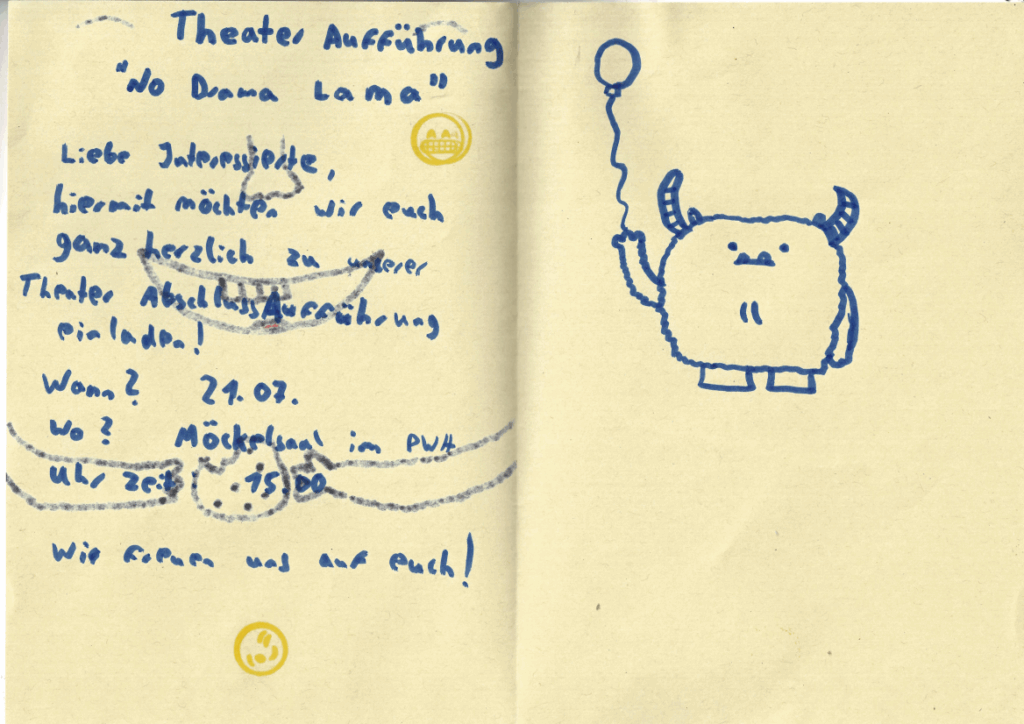 Theater Aufführung
"No Drama Lama"
Liebe Interessierte,
hiermit möchten wir euch
ganz herzlich zu unserer
Theater AbschlussAufführung
einladen!
Wann? 21.07.
Wo? Möckelsaal im PWH
Uhr zeit 15.00
Wir freuen uns auf euch!